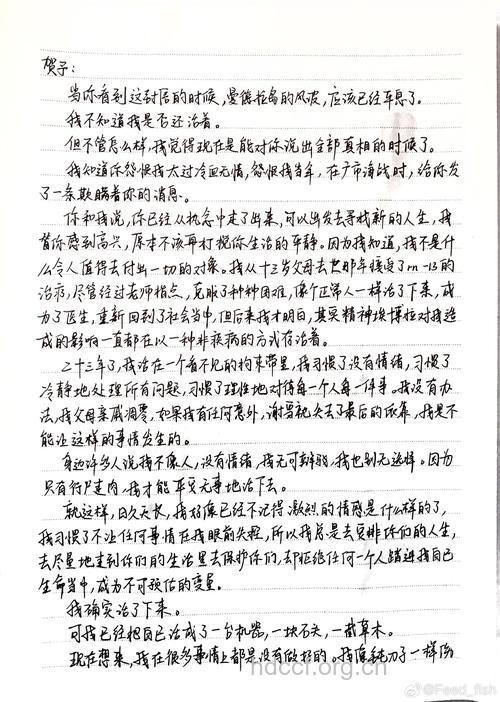 贺予：
当你看到这封信的时候，曼德拉岛的风波，应该已经平息了。
我不知道我是否还活着。
但不管怎么样，我觉得现在是能对你说出全部真相的时候了。
我知道你怨恨我太过冷血无情，怨恨我当年，在广市海战时，给你发
了一条欺瞒着你的消息。
你和我说，你已经从执念中走了出来，可以出发去寻找新的人生，我
替你感到高兴，原本不该再打搅你生活的平静。因为我知道，我不是什
么令人值得去付出一切的对象。我从十三岁父母去世那年接受了rn-13的
治疗，尽管经过老师指点，克服了种种困难，像个正常人一样活了下来，成
为了医生，重新回到了社会当中，但后来我才明白，其实精神埃博拉对我造
成的影响一直都在以一种非疾病的方式存活着。
二十三年了，我活在一个看不见的拘束带里，我习惯了没有情绪，习惯了
冷静地处理所有问题，习惯了理性地对待每一个人每一件事。我没有办
法，我父母亲戚凋零，如果我有任何意外，谢雪就失去了最后的依靠，我是不
能让这样的事情发生的。
身边许多人说我不像人，没有情绪，我无可辩驳，我也别无选择。因为
只有行尸走肉，我才能平安无事地活下去。
就这样，日久天长，我好像已经不记得激烈的情感是什么样的了，
我习惯了不让任何事情在我眼前失控，所以我总是去安排你们的人生，
去尽量地走到你们的生活里去保护你们，却拒绝任何一个人踏进我自己
生命当中，成为不可预估的变量。
我确实活了下来。
可我已经把自己活成了一台机器，一块石头，一截草木。
现在想来，我在很多事情上都是没有做好的。我像钝刀子一样伤
hdcci.org.cn
@Feed_fish